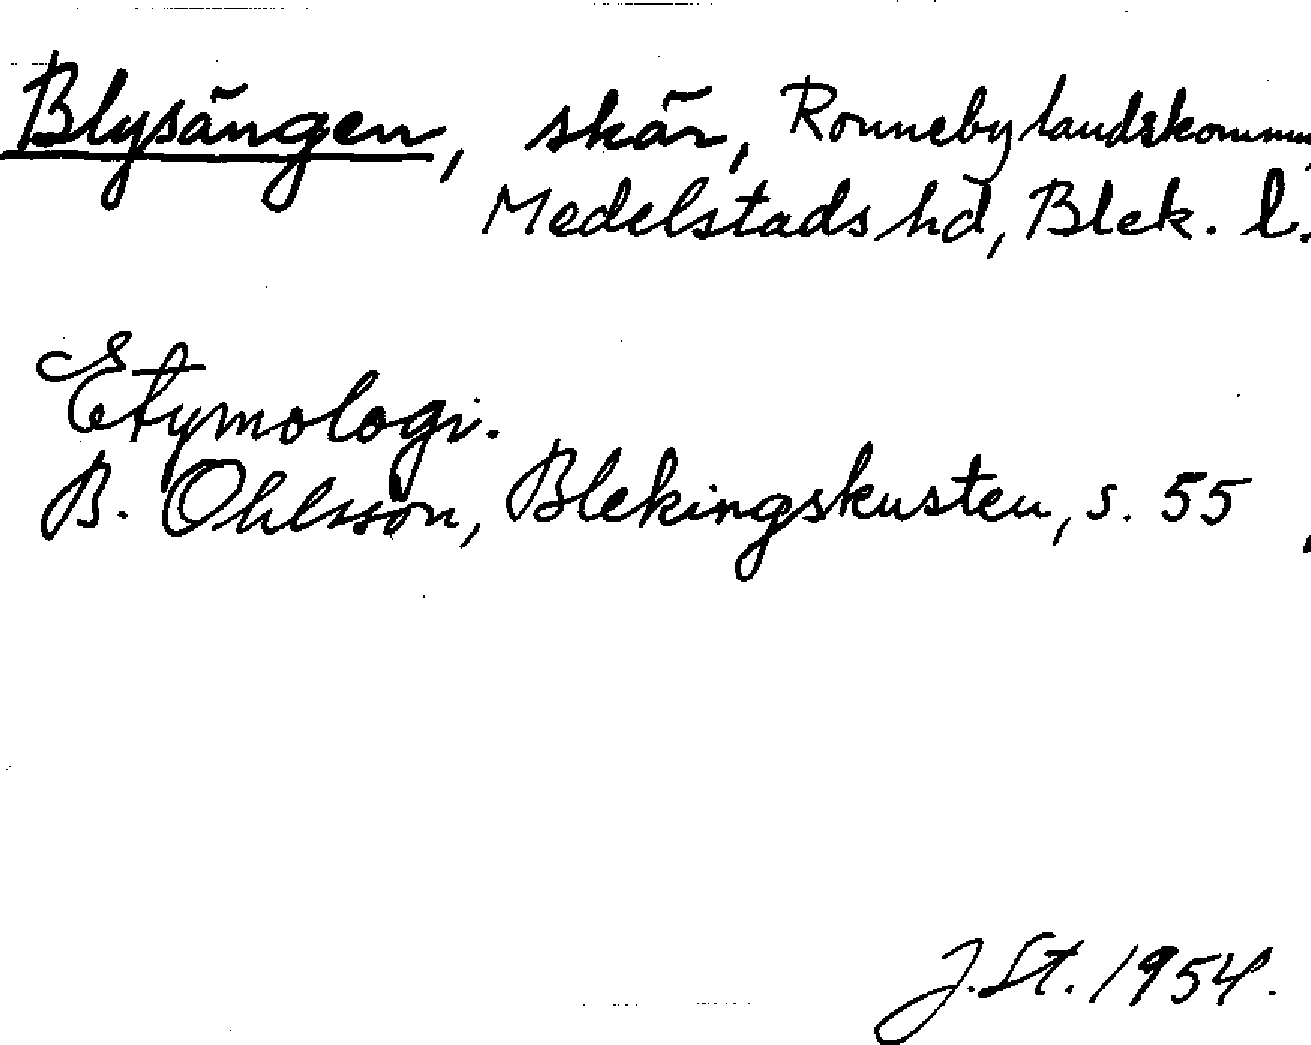 Blysängen, skär, Ronneby landskommu
Medelstads hd, Blek. l.
Etymologi.
B. Ohlsson, Blekingskusten, s. 55,
J. St. 1954.